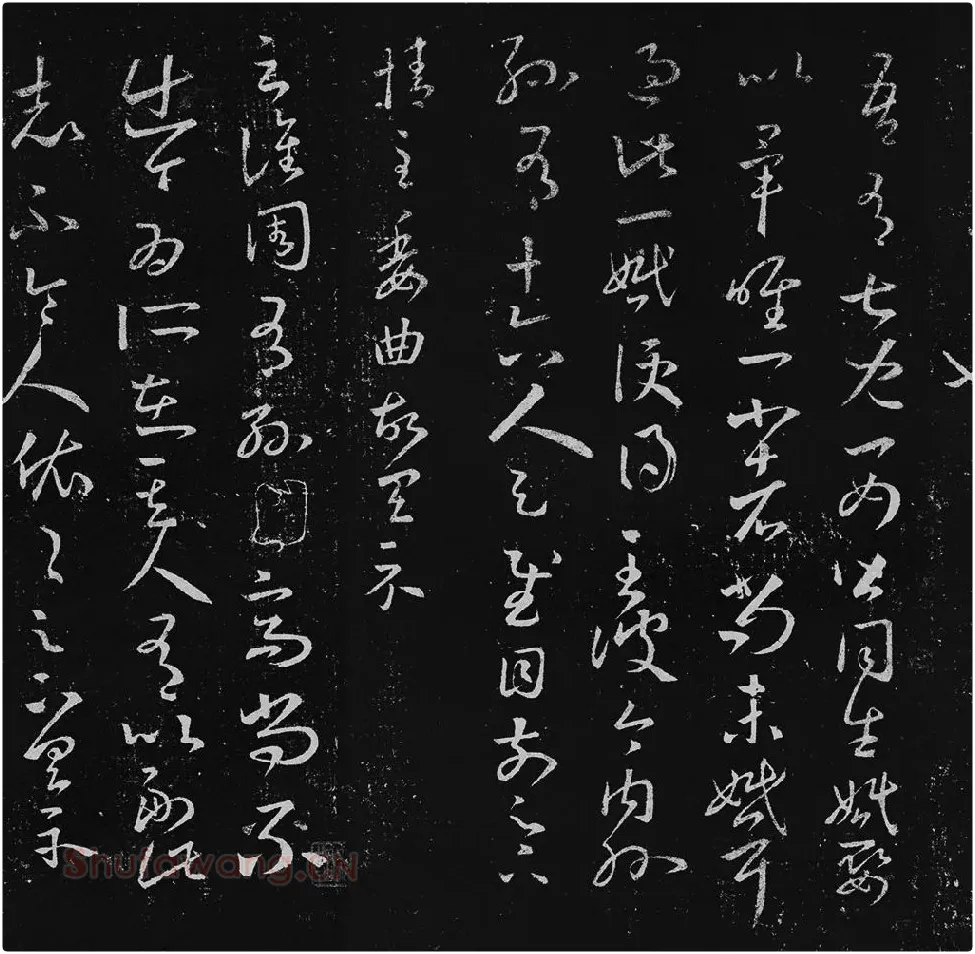 吾有七兒一女皆同生婚娶
以畢唯一小者尚未婚耳
過此一婚便得至彼今內外
孫有十六人足慰目前足下
情至委曲故具示
云譙周有孫高尚不
出今為所在其人有以副此
志不令人依依足下具示
Shufawang.CN